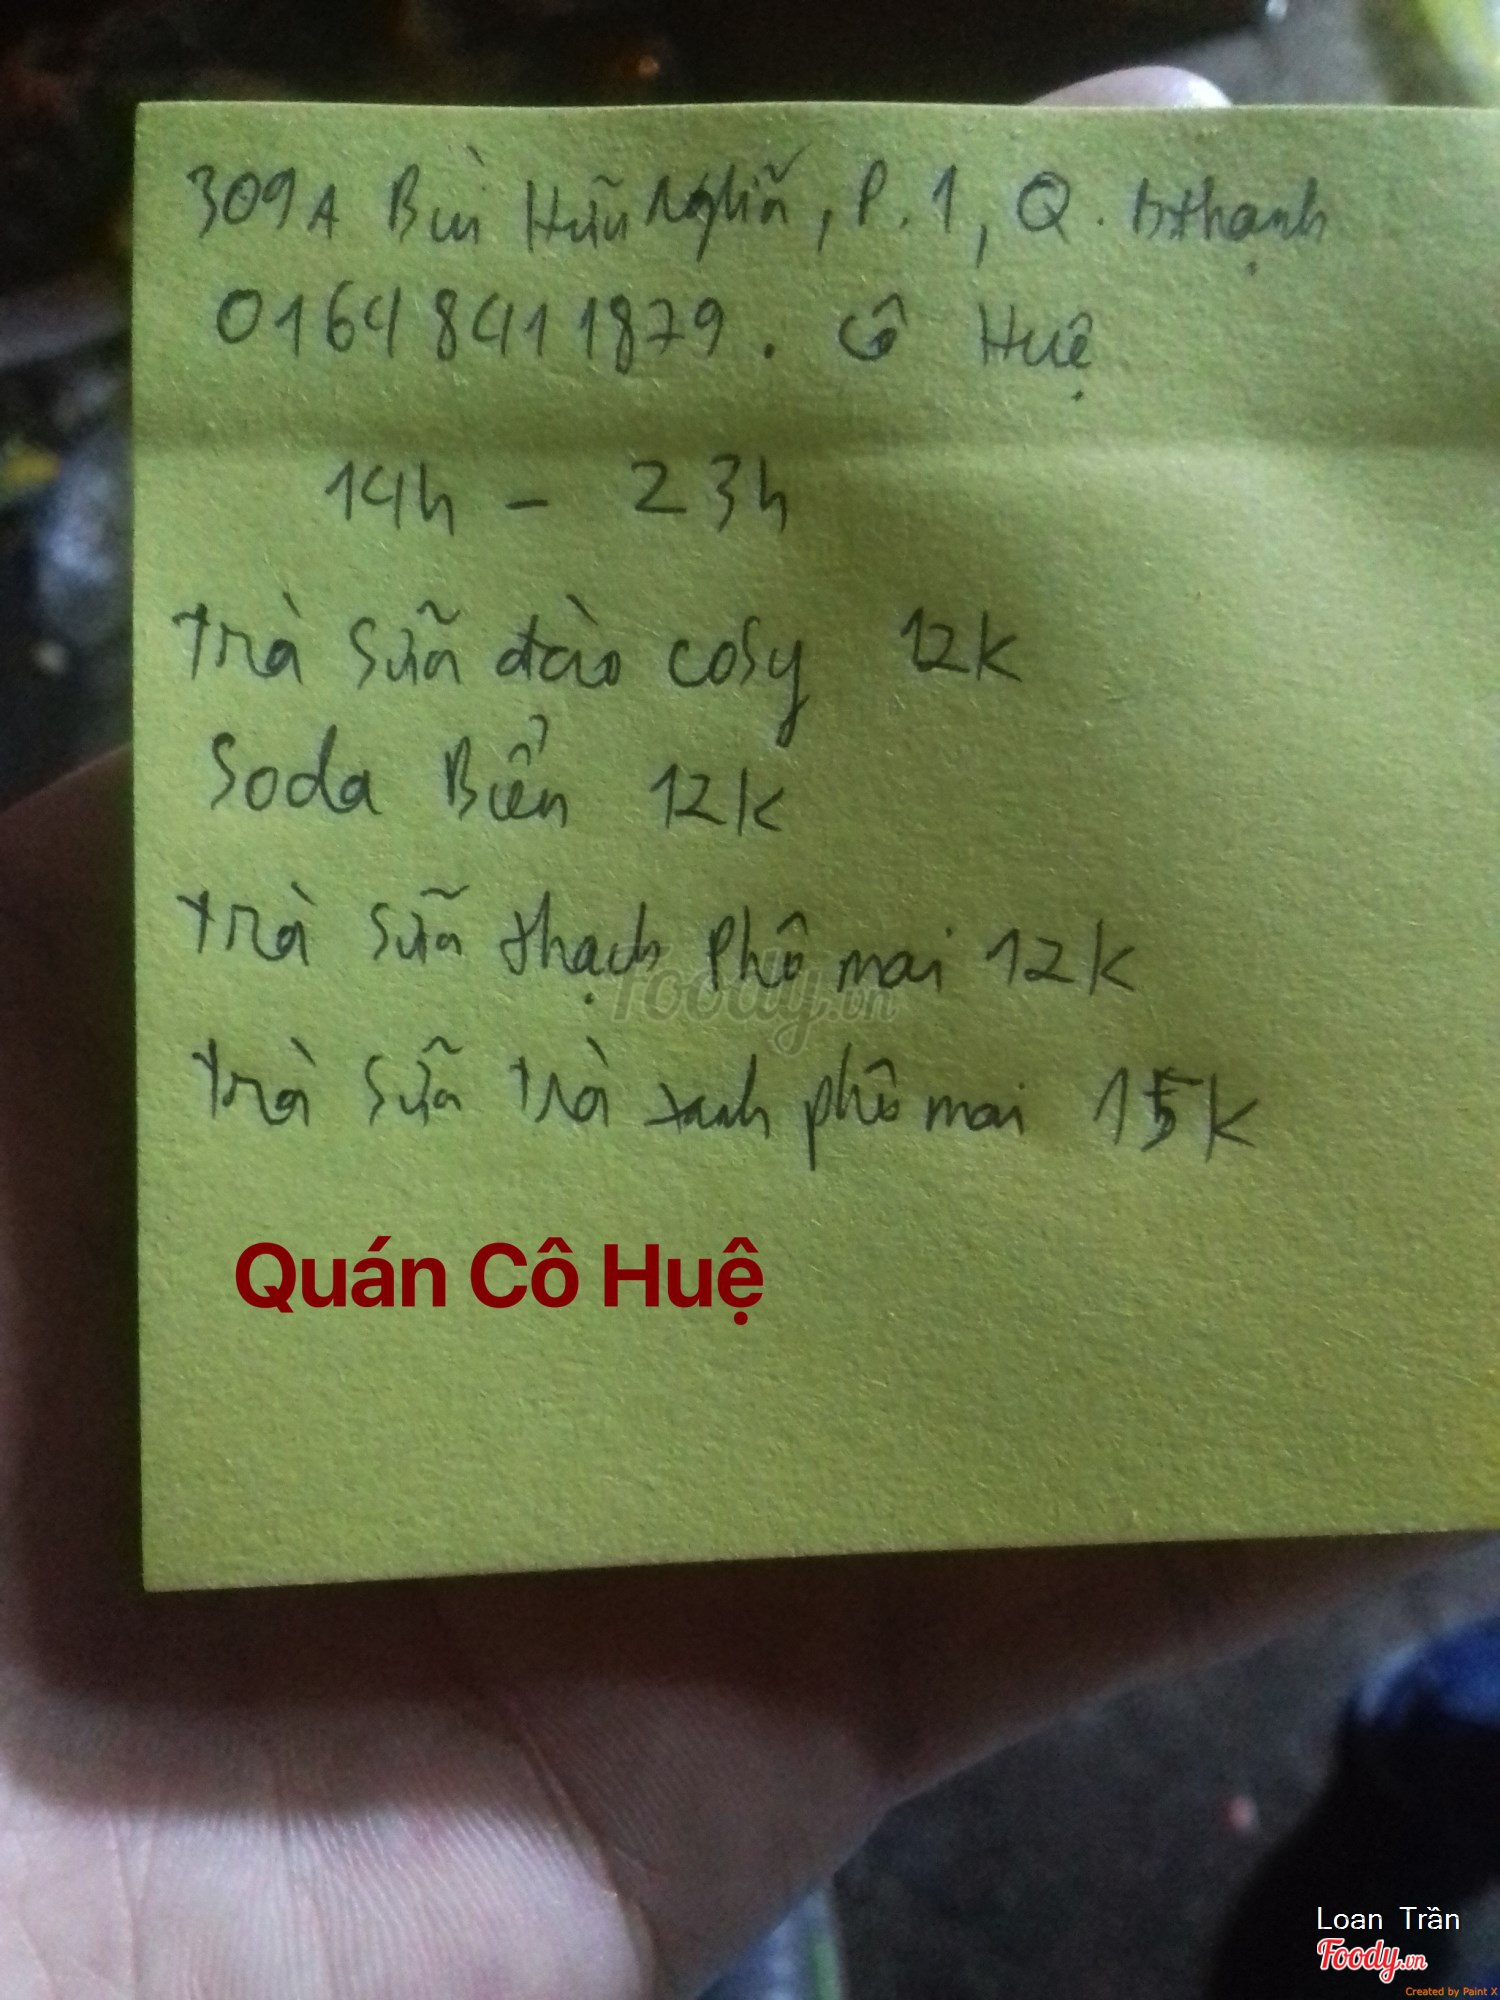 309A Bùi Hữu Nghĩa, P. 1, Q. Bthạnh
01648411879. Cô Huệ
14h - 23h
Trà sữa đào cosy 12k
Soda Biển 12k
Trà sữa thạch Phô mai 12k
foody.vn
Trà sữa trà xanh phô mai 15k
Quán Cô Huệ
Loan Trần
Foody.vn
Created by Paint X